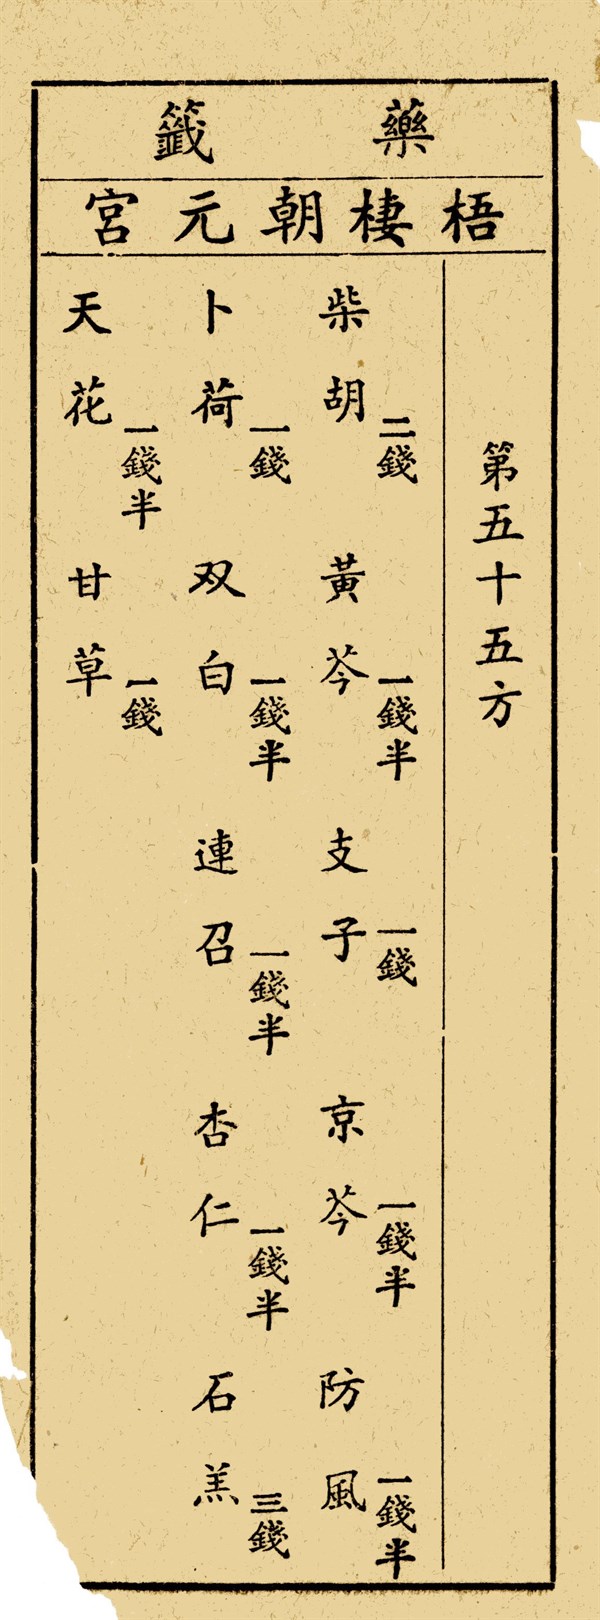 藥籤
梧棲朝元宮
第五十五方
柴胡二錢 黃芩一錢半 支子一錢 京芩一錢半 防風一錢半
卜荷一錢 双白一錢半 連召一錢半 杏仁一錢半 石羔三錢
天花一錢半 甘草一錢